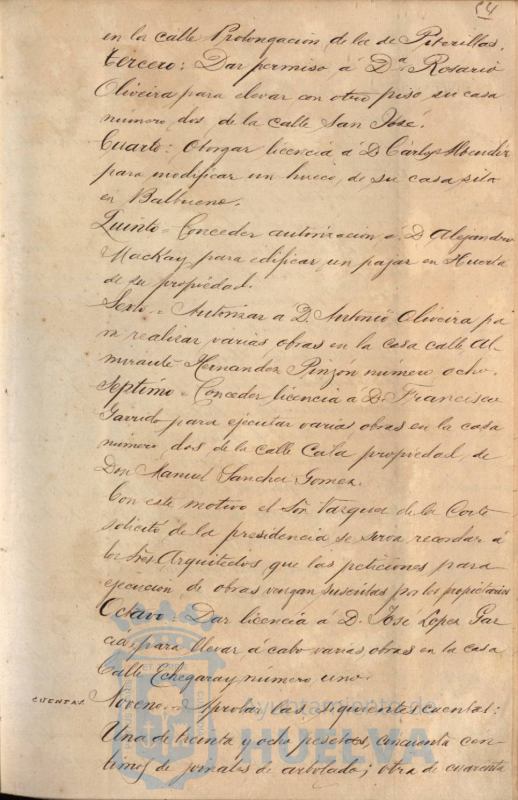 54
en la calle Prolongación de la de Piterillas.
Tercero: Dar permiso á Dª Rosario
Oliveira para elevar con otro piso su casa
número dos de la calle San José.
Cuarto: Otorgar licencia á D. Carlos
para modificar un hueco, de su casa sita
en Balbueno.
Quinto = Conceder autorización á D. Alejandro
Mackay para edificar un pajar en Huerta
de su propiedad.
Sexto. = Autorizar a D. Antonio Oliveira pa
ra realizar varias obras en la casa calle Al
mirante Hernandez Pinzón número ocho.
Septimo = Conceder licencia á D. Francisco
Garrido para ejecutar varias obras en la casa
número dos de la calle Cala propiedad de
Don Manuel Sanchez Gomez.
Con este motivo el Sór Vazquez de la Corte
solicitó de la presidencia se sirva recordar á
los Sres Arquitectos que las peticiones para
ejecucion de obras vengan suscritas por los propietarios
Octavo: Dar licencia á D. José Lopez Gar
cia, para llevar á cabo varias obras en la casa
Calle Echegaray número uno.
CUENTAS Noveno. = Aprobar las siguientes cuentas:
Una de treinta y ocho pesetas, cincuenta cen
timos de jornales de arbolado; otra de cuarenta
Ayuntamiento de
HUELVA